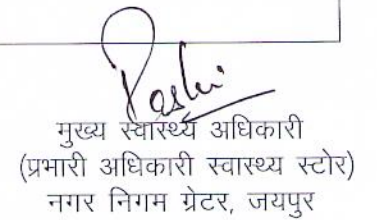 मुख्य स्वास्थ्य अधिकारी
(प्रभारी अधिकारी स्वास्थ्य स्टोर)
नगर निगम ग्रेटर, जयपुर